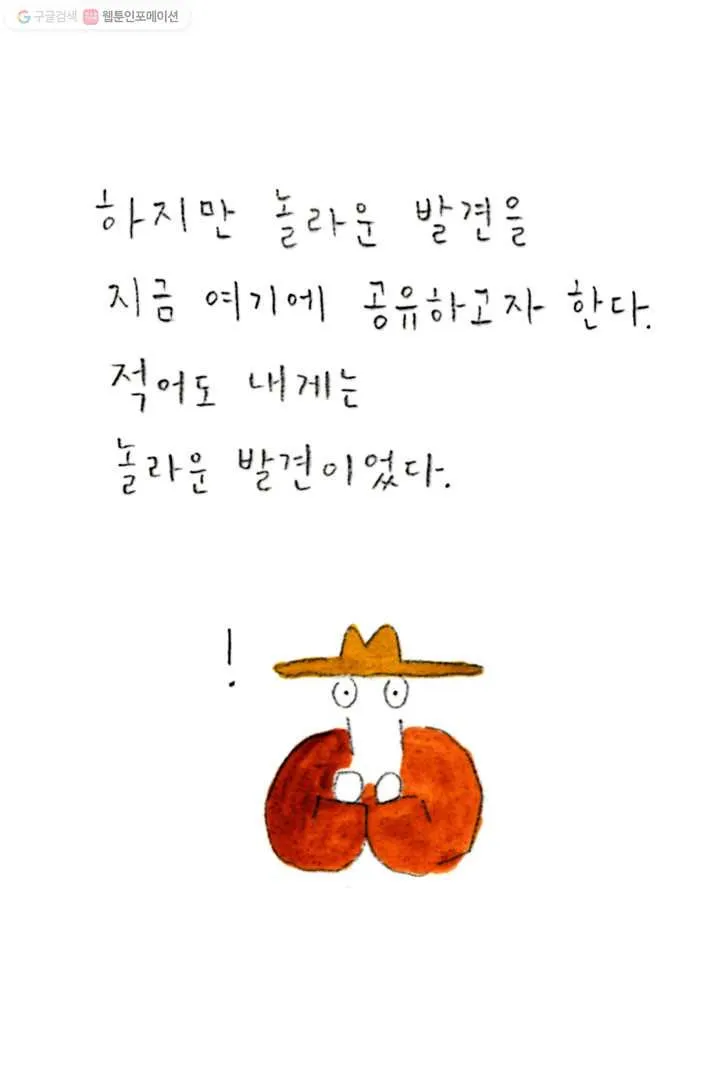 구글검색 웹툰인포메이션
하지만 놀라운 발견을
지금 여기에 공유하고자 한다.
적어도 내게는
놀라운 발견이었다.
!